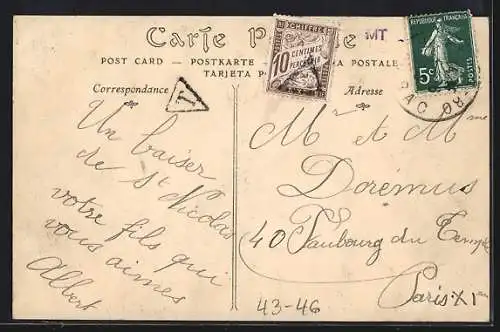 Carte P
POST CARD — POSTKARTE
TARJETA PO
A POSTALE
CHIFFRE
10 CENTIMES
A PERCEVOIR
MT
REPUBLIQUE FRANÇAISE
5c
POSTES
Correspondance
T
Adresse
Un baiser
de St Nicolas
votre fils qui
vous aimes
Albert
Mr et Mme
Dorémus
40 Faubourg du Temple
Paris XI
43-46